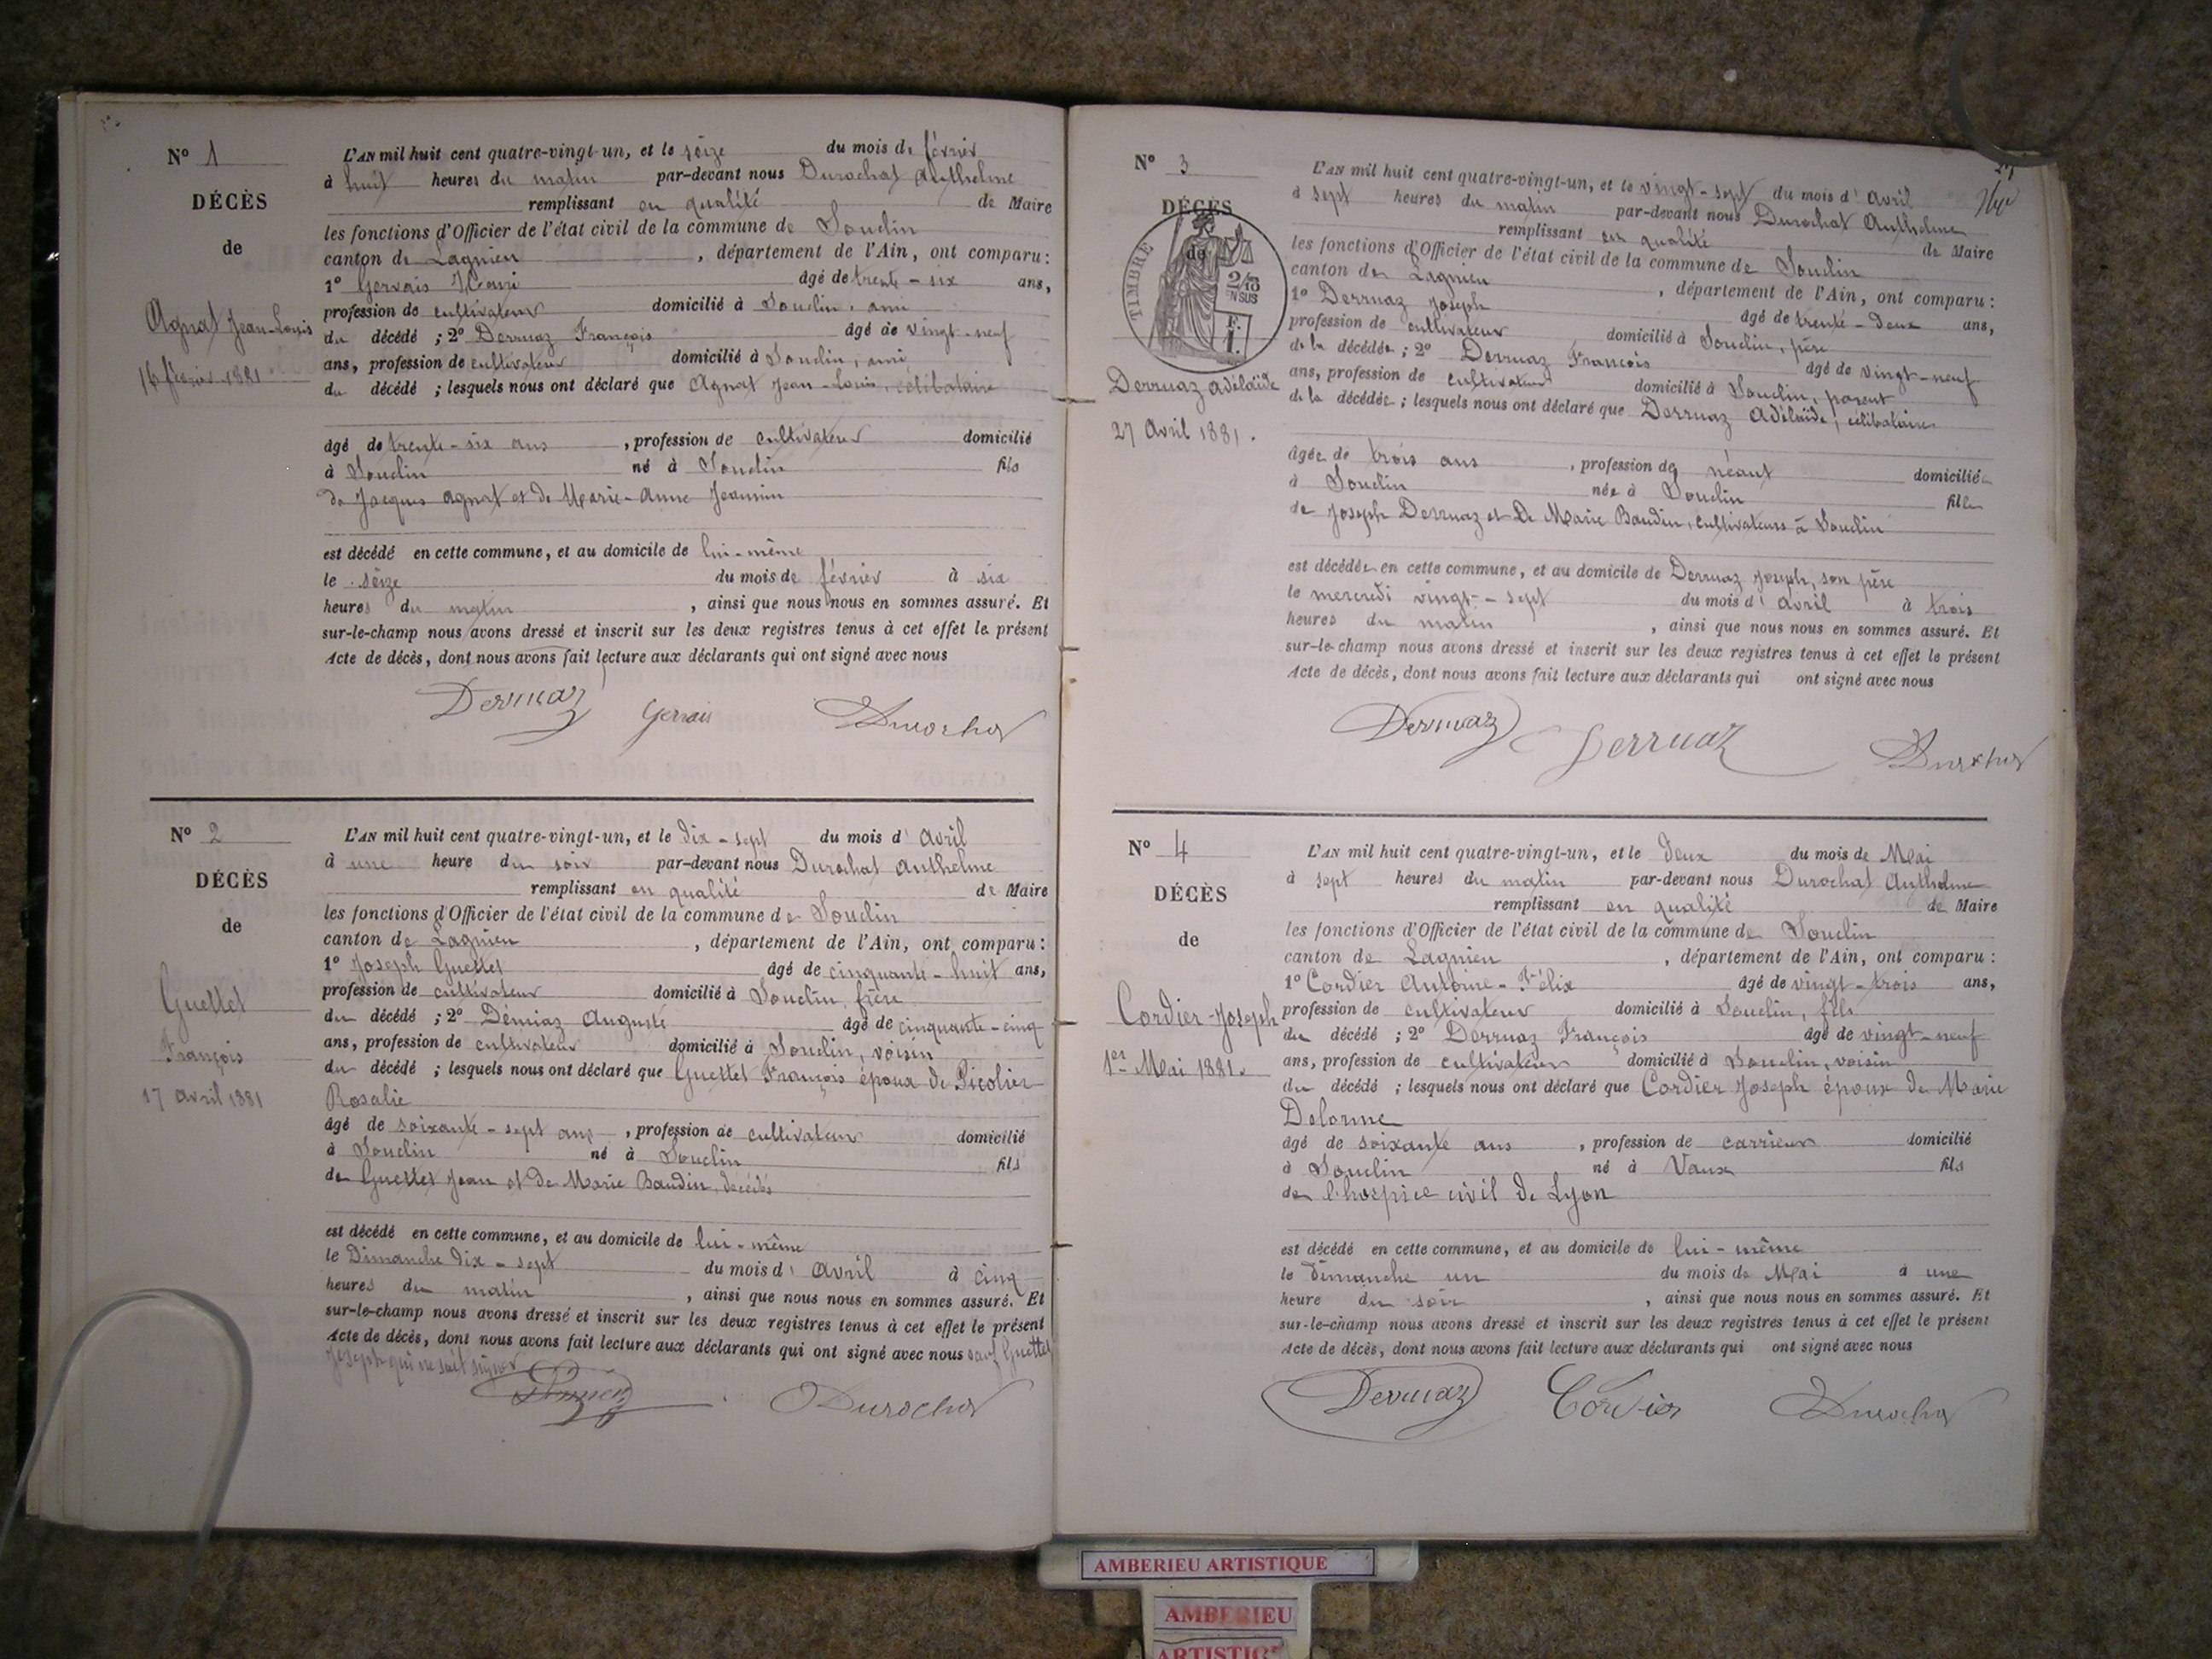 N° 1
DÉCÈS
de
Agnat Jean-Louis
16 février 1881
L'AN mil huit cent quatre-vingt-un, et le seize du mois de février
à huit heures du matin par-devant nous Durochat Anthelme
remplissant en qualité de Maire
les fonctions d'Officier de l'état civil de la commune de Souclin
canton de Lagnieu, département de l'Ain, ont comparu :
1° Gervais Henri âgé de trente-six ans,
profession de cultivateur domicilié à Souclin, ami
du décédé ; 2° Derruaz François âgé de vingt-neuf
ans, profession de cultivateur domicilié à Souclin, ami
du décédé ; lesquels nous ont déclaré que Agnat Jean-Louis, célibataire
âgé de trente-six ans, profession de cultivateur domicilié
à Souclin né à Souclin fils
de Jacques Agnat et de Marie-Anne Jeannin
est décédé en cette commune, et au domicile de lui-même
le seize du mois de février à six
heures du matin, ainsi que nous nous en sommes assuré. Et
sur-le-champ nous avons dressé et inscrit sur les deux registres tenus à cet effet le présent
Acte de décès, dont nous avons fait lecture aux déclarants qui ont signé avec nous
Derruaz Gervais Durochat
N° 2
DÉCÈS
de
Guettet
François
17 avril 1881
L'AN mil huit cent quatre-vingt-un, et le dix-sept du mois d'avril
à une heure du soir par-devant nous Durochat Anthelme
remplissant en qualité de Maire
les fonctions d'Officier de l'état civil de la commune de Souclin
canton de Lagnieu, département de l'Ain, ont comparu :
1° Joseph Guettet âgé de cinquante-huit ans,
profession de cultivateur domicilié à Souclin, frère
du décédé ; 2° Démiaz Auguste âgé de cinquante-cinq
ans, profession de cultivateur domicilié à Souclin, voisin
du décédé ; lesquels nous ont déclaré que Guettet François époux de Picolier
Rosalie
âgé de soixante-sept ans, profession de cultivateur domicilié
à Souclin né à Souclin fils
de Guettet Jean et de Marie Baudin, décédés
est décédé en cette commune, et au domicile de lui-même
le Dimanche dix-sept du mois d'avril à cinq
heures du matin, ainsi que nous nous en sommes assuré. Et
sur-le-champ nous avons dressé et inscrit sur les deux registres tenus à cet effet le présent
Acte de décès, dont nous avons fait lecture aux déclarants qui ont signé avec nous sauf Guettet
Joseph qui ne sait signer
Durochat
N° 3
DÉCÈS
de
TIMBRE
2/10
EN SUS
F.
1.
Derruaz Adélaïde
27 Avril 1881.
L'AN mil huit cent quatre-vingt-un, et le vingt-sept du mois d'avril
à sept heures du matin par-devant nous Durochat Anthelme
remplissant en qualité de Maire
les fonctions d'Officier de l'état civil de la commune de Souclin
canton de Lagnieu, département de l'Ain, ont comparu :
1° Derruaz Joseph âgé de trente-deux ans,
profession de cultivateur domicilié à Souclin, père
de la décédée ; 2° Derruaz François âgé de vingt-neuf
ans, profession de cultivateur domicilié à Souclin, parent
de la décédée ; lesquels nous ont déclaré que Derruaz Adélaïde, célibataire
âgée de trois ans, profession de néant domiciliée
à Souclin née à Souclin fille
de Joseph Derruaz et de Marie Baudin, cultivateurs à Souclin
est décédée en cette commune, et au domicile de Derruaz Joseph, son père
le mercredi vingt-sept du mois d'avril à trois
heures du matin, ainsi que nous nous en sommes assuré. Et
sur-le-champ nous avons dressé et inscrit sur les deux registres tenus à cet effet le présent
Acte de décès, dont nous avons fait lecture aux déclarants qui ont signé avec nous
Derruaz Derruaz Durochat
N° 4
DÉCÈS
de
Cordier Joseph
1er Mai 1881.
L'AN mil huit cent quatre-vingt-un, et le deux du mois de Mai
à sept heures du matin par-devant nous Durochat Anthelme
remplissant en qualité de Maire
les fonctions d'Officier de l'état civil de la commune de Souclin
canton de Lagnieu, département de l'Ain, ont comparu :
1° Cordier Antoine-Félix âgé de vingt-trois ans,
profession de cultivateur domicilié à Souclin, fils
du décédé ; 2° Derruaz François âgé de vingt-neuf
ans, profession de cultivateur domicilié à Souclin, voisin
du décédé ; lesquels nous ont déclaré que Cordier Joseph époux de Marie
Delorme
âgé de soixante ans, profession de carrieur domicilié
à Souclin né à Vaux fils
de l'hospice civil de Lyon
est décédé en cette commune, et au domicile de lui-même
le dimanche un du mois de Mai à une
heure du soir, ainsi que nous nous en sommes assuré. Et
sur-le-champ nous avons dressé et inscrit sur les deux registres tenus à cet effet le présent
Acte de décès, dont nous avons fait lecture aux déclarants qui ont signé avec nous
Derruaz Cordier Durochat
AMBERIEU ARTISTIQUE
AMBERIEU